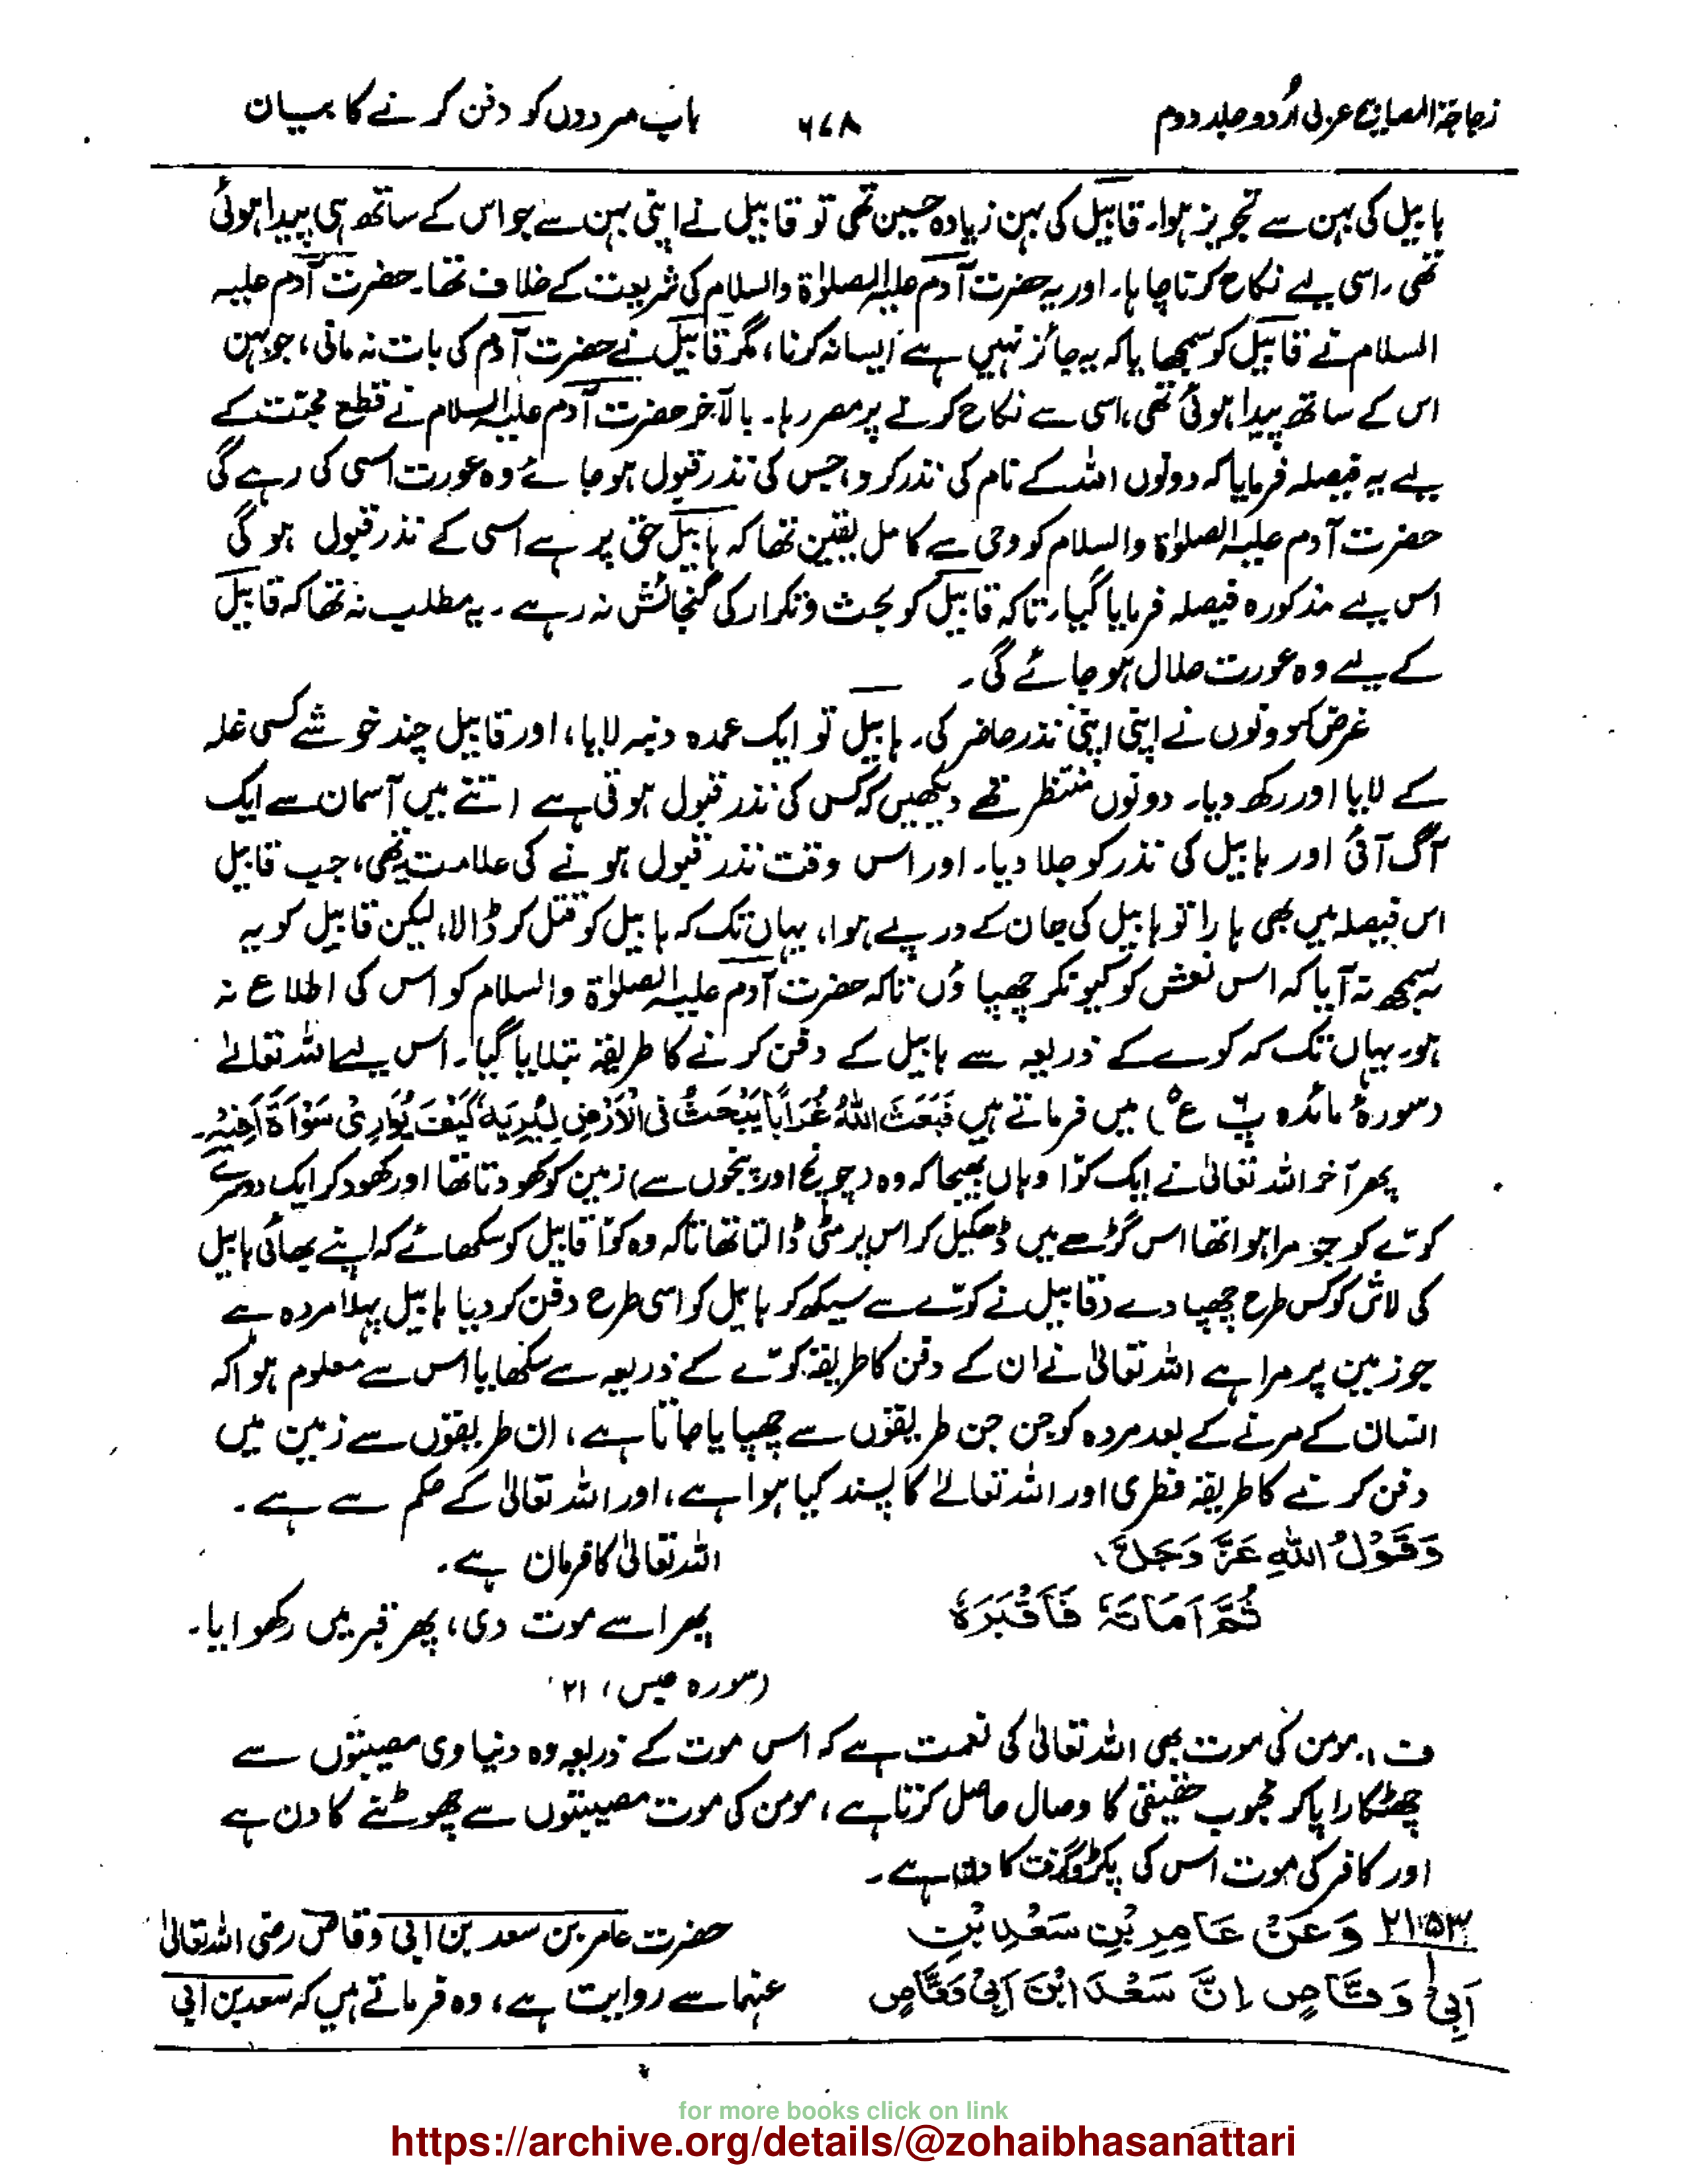 زجاجۃ المصابیح عربی اُردو جلد دوم ۶۷۸ باب مردوں کو دفن کرنے کا بیان
ہابیل کی بہن سے تجویز ہوا۔ قابیل کی بہن زیادہ حسین تھی تو قابیل نے اپنی بہن سے جو اس کے ساتھ ہی پیدا ہوئی
تھی، اسی لیے نکاح کرنا چاہا۔ اور یہ حضرت آدم علیہ الصلوٰۃ والسلام کی شریعت کے خلاف تھا۔ حضرت آدم علیہ
السلام نے قابیل کو سمجھایا کہ یہ جائز نہیں ہے ایسا نہ کرنا، مگر قابیل نے حضرت آدم کی بات نہ مانی، جو بہن
اس کے ساتھ پیدا ہوئی تھی، اسی سے نکاح کرنے پر مصر رہا۔ بالآخر حضرت آدم علیہ السلام نے قطع محبت کے
لیے یہ فیصلہ فرمایا کہ دونوں اللہ کے نام کی نذر کرو، جس کی نذر قبول ہو جائے وہ عورت اسی کی رہے گی
حضرت آدم علیہ الصلوٰۃ والسلام کو وحی سے کامل یقین تھا کہ ہابیل حق پر ہے اسی کے نذر قبول ہو گی
اس لیے مذکورہ فیصلہ فرمایا گیا، تاکہ قابیل کو بحث و تکرار کی گنجائش نہ رہے۔ یہ مطلب نہ تھا کہ قابیل
کے لیے وہ عورت حلال ہو جائے گی۔
غرض کہ دونوں نے اپنی اپنی نذر حاضر کی۔ ہابیل تو ایک عمدہ دنبہ لایا، اور قابیل چند خوشے کسی غلہ
کے لایا اور رکھ دیا۔ دونوں منتظر تھے دیکھیں کہ کس کی نذر قبول ہوتی ہے اتنے میں آسمان سے ایک
آگ آئی اور ہابیل کی نذر کو جلا دیا۔ اور اس وقت نذر قبول ہونے کی علامت یہ تھی، جب قابیل
اس فیصلہ میں بھی ہارا تو ہابیل کی جان کے درپے ہوا، یہاں تک کہ ہابیل کو قتل کر ڈالا، لیکن قابیل کو یہ
سمجھ نہ آیا کہ اس نعش کو کیونکر چھپاؤں تاکہ حضرت آدم علیہ الصلوٰۃ والسلام کو اس کی اطلاع نہ
ہو۔ یہاں تک کہ کوے کے ذریعہ سے ہابیل کے دفن کرنے کا طریقہ بتلایا گیا۔ اس لیے اللہ تعالےٰ
(سورۂ مائدہ پ۶ ع۵) میں فرماتے ہیں فَبَعَثَ اللّٰهُ غُرَابًا يَبْحَثُ فِي الْاَرْضِ لِيُرِيَهٗ كَيْفَ يُوَارِيْ سَوْاَةَ اَخِيْهِ۔
پھر آخر اللہ تعالیٰ نے ایک کوّا وہاں بھیجا کہ وہ (چونچ اور پنجوں سے) زمین کو کھودتا تھا اور کھود کر ایک دوسرے
کوّے کو جو مرا ہوا تھا اس گڑھے میں ڈھکیل کر اس پر مٹی ڈالتا تھا تاکہ وہ کوّا قابیل کو سکھائے کہ اپنے بھائی ہابیل
کی لاش کو کس طرح چھپا دے (قابیل نے کوّے سے سیکھ کر ہابیل کو اسی طرح دفن کر دیا ہابیل پہلا مردہ ہے
جو زمین پر مرا ہے اللہ تعالیٰ نے ان کے دفن کا طریقہ کوّے کے ذریعہ سے سکھایا اس سے معلوم ہوا کہ
انسان کے مرنے کے بعد مردہ کو جن جن طریقوں سے چھپایا جاتا ہے، ان طریقوں سے زمین میں
دفن کرنے کا طریقہ فطری اور اللہ تعالےٰ کا پسند کیا ہوا ہے، اور اللہ تعالیٰ کے حکم سے ہے۔
وَقَوْلُ اللّٰهِ عَزَّ وَجَلَّ، اللہ تعالیٰ کا فرمان ہے۔
ثُمَّ اَمَاتَهٗ فَاَقْبَرَهٗ پھر اسے موت دی، پھر قبر میں رکھوایا۔
(سورہ عبس، ۲۱)
ف:۔ مومن کی موت بھی اللہ تعالیٰ کی نعمت ہے کہ اس موت کے ذریعہ وہ دنیاوی مصیبتوں سے
چھٹکارا پا کر محبوب حقیقی کا وصال حاصل کرتا ہے، مومن کی موت مصیبتوں سے چھوٹنے کا دن ہے
اور کافر کی موت اس کی پکڑ و گرفت کا دن ہے۔
۲۱۵۳ وَعَنْ عَامِرِ بْنِ سَعْدِ بْنِ حضرت عامر بن سعد بن ابی وقاص رضی اللہ تعالیٰ
اَبِيْ وَقَّاصٍ اِنَّ سَعْدَ ابْنَ اَبِيْ وَقَّاصٍ عنہما سے روایت ہے، وہ فرماتے ہیں کہ سعد بن ابی
for more books click on link
https://archive.org/details/@zohaibhasanattari